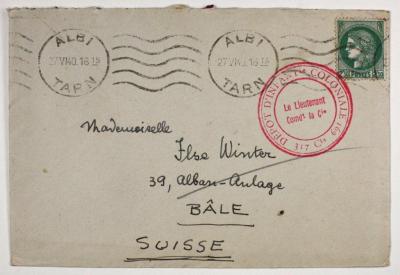 ALBI
27 VI 40. 16 15
TARN
ALBI
27 VI 40. 16 15
TARN
POSTES
DÉPÔT D'INFANTIE COLONIALE 169
Le Lieutenant
Comdt la Cie
317 Cie
Mademoiselle
Ilse Winter
39, Alban-Anlage
BÂLE
SUISSE